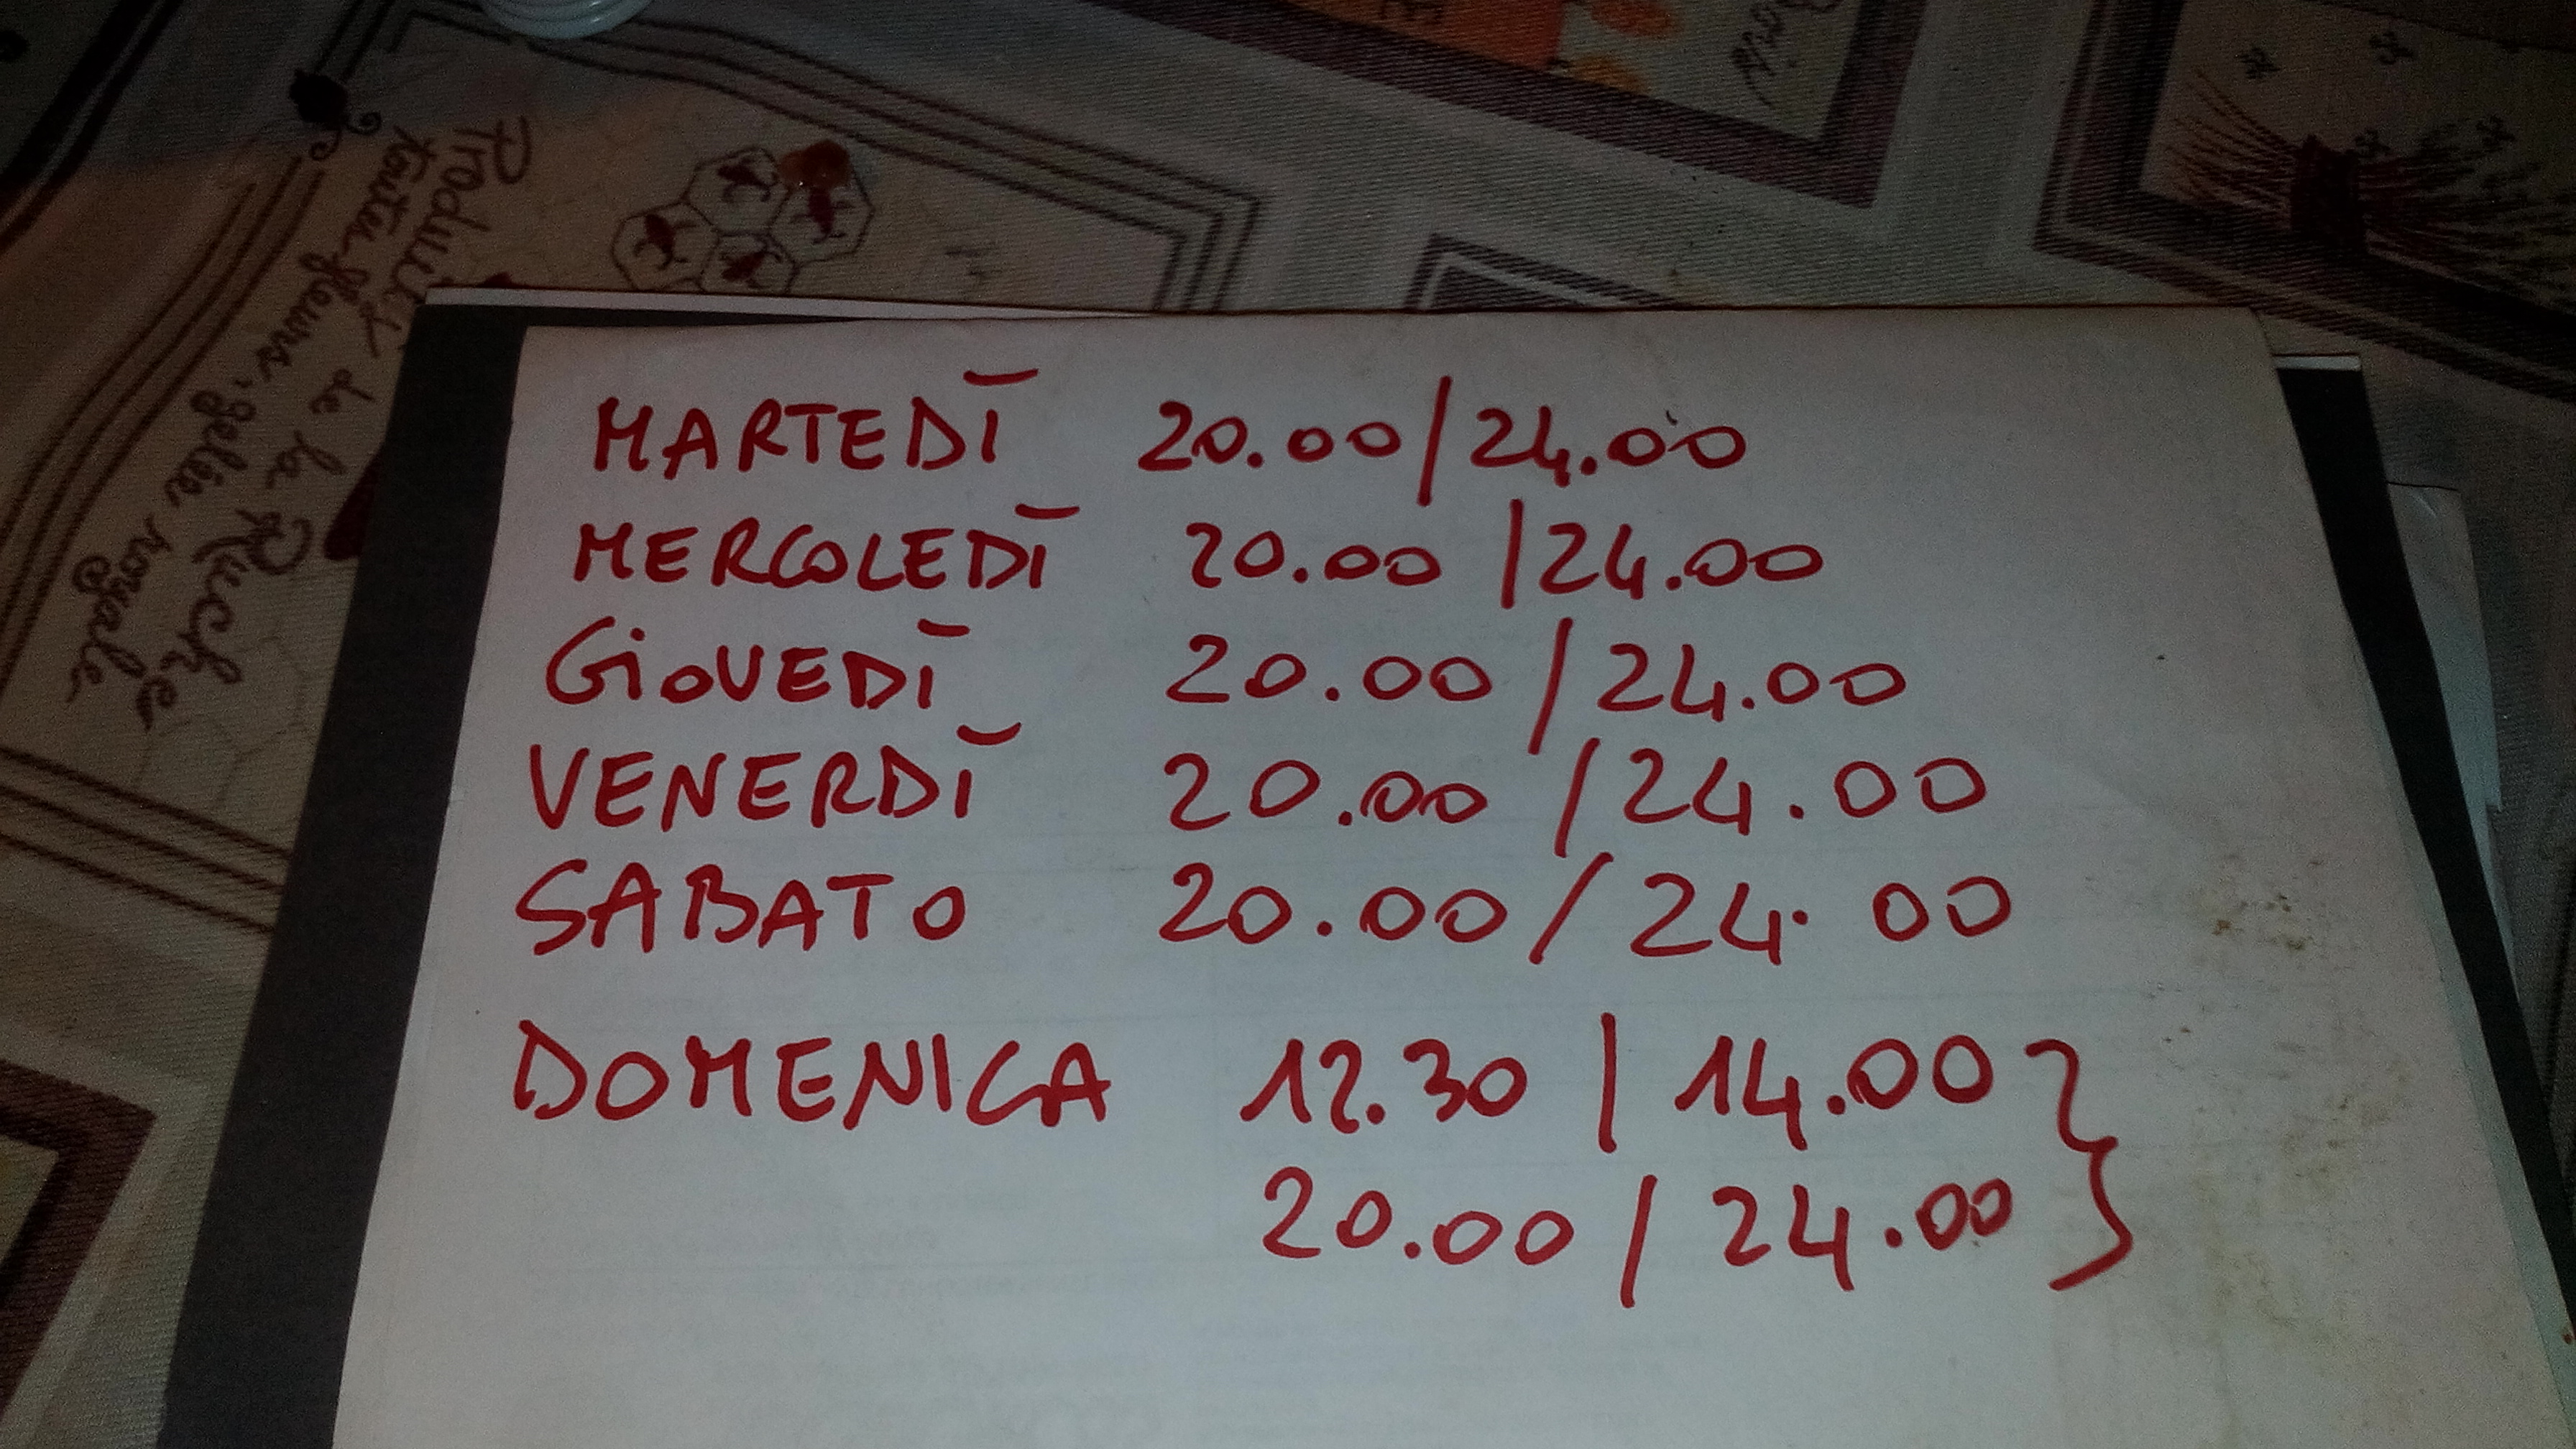 Produits de la Ruche
toutes fleurs, gelée royale
MARTEDÌ 20.00/24.00
MERCOLEDÌ 20.00/24.00
GIOVEDÌ 20.00/24.00
VENERDÌ 20.00/24.00
SABATO 20.00/24.00
DOMENICA 12.30/14.00
20.00/24.00